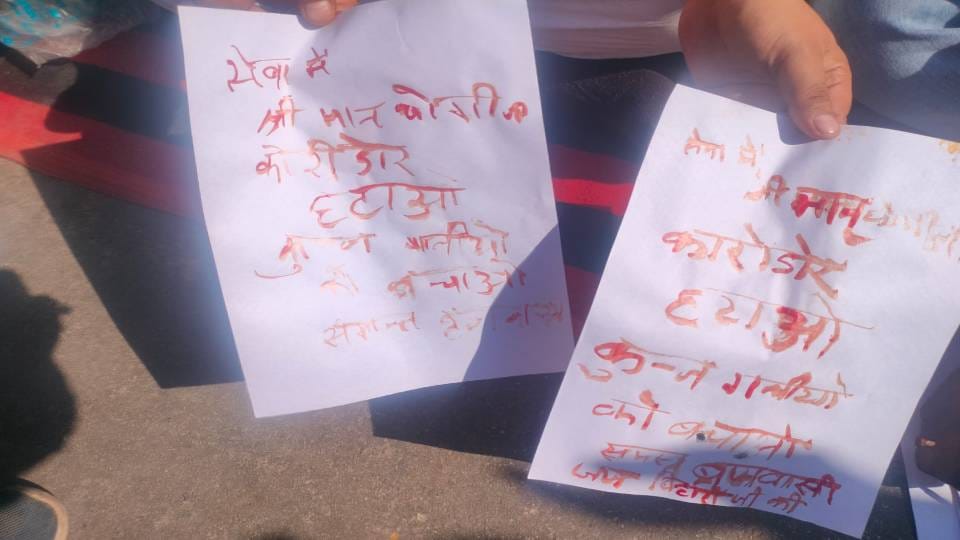 सेवा में
श्री मान योगीज
कोरीडोर
हटाओ
कुन्ज गलीयो
को बन्चाओ
समस्त
सेवा में
श्री मान् योगीजी
कारोडोर
हटाओ
कुन्ज गलीयो
को बचाओ
समस्त ब्रजवासी
जय बिहारी जी की